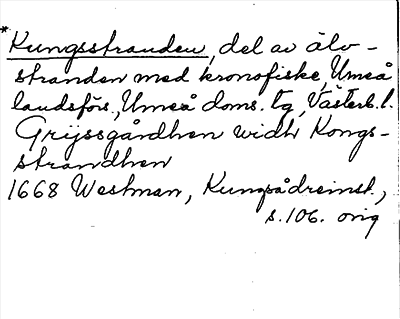 *Kungsstranden, del av älv-
stranden med kronofiske, Umeå
landsförs., Umeå doms. tg, Västerb. l.
Grijssgårdhen widh Kongs-
strandhen
1668 Westman, Kungsådreinst.,
s. 106. orig